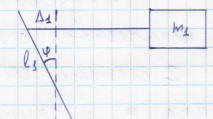 Δ1
m1
l1
φ